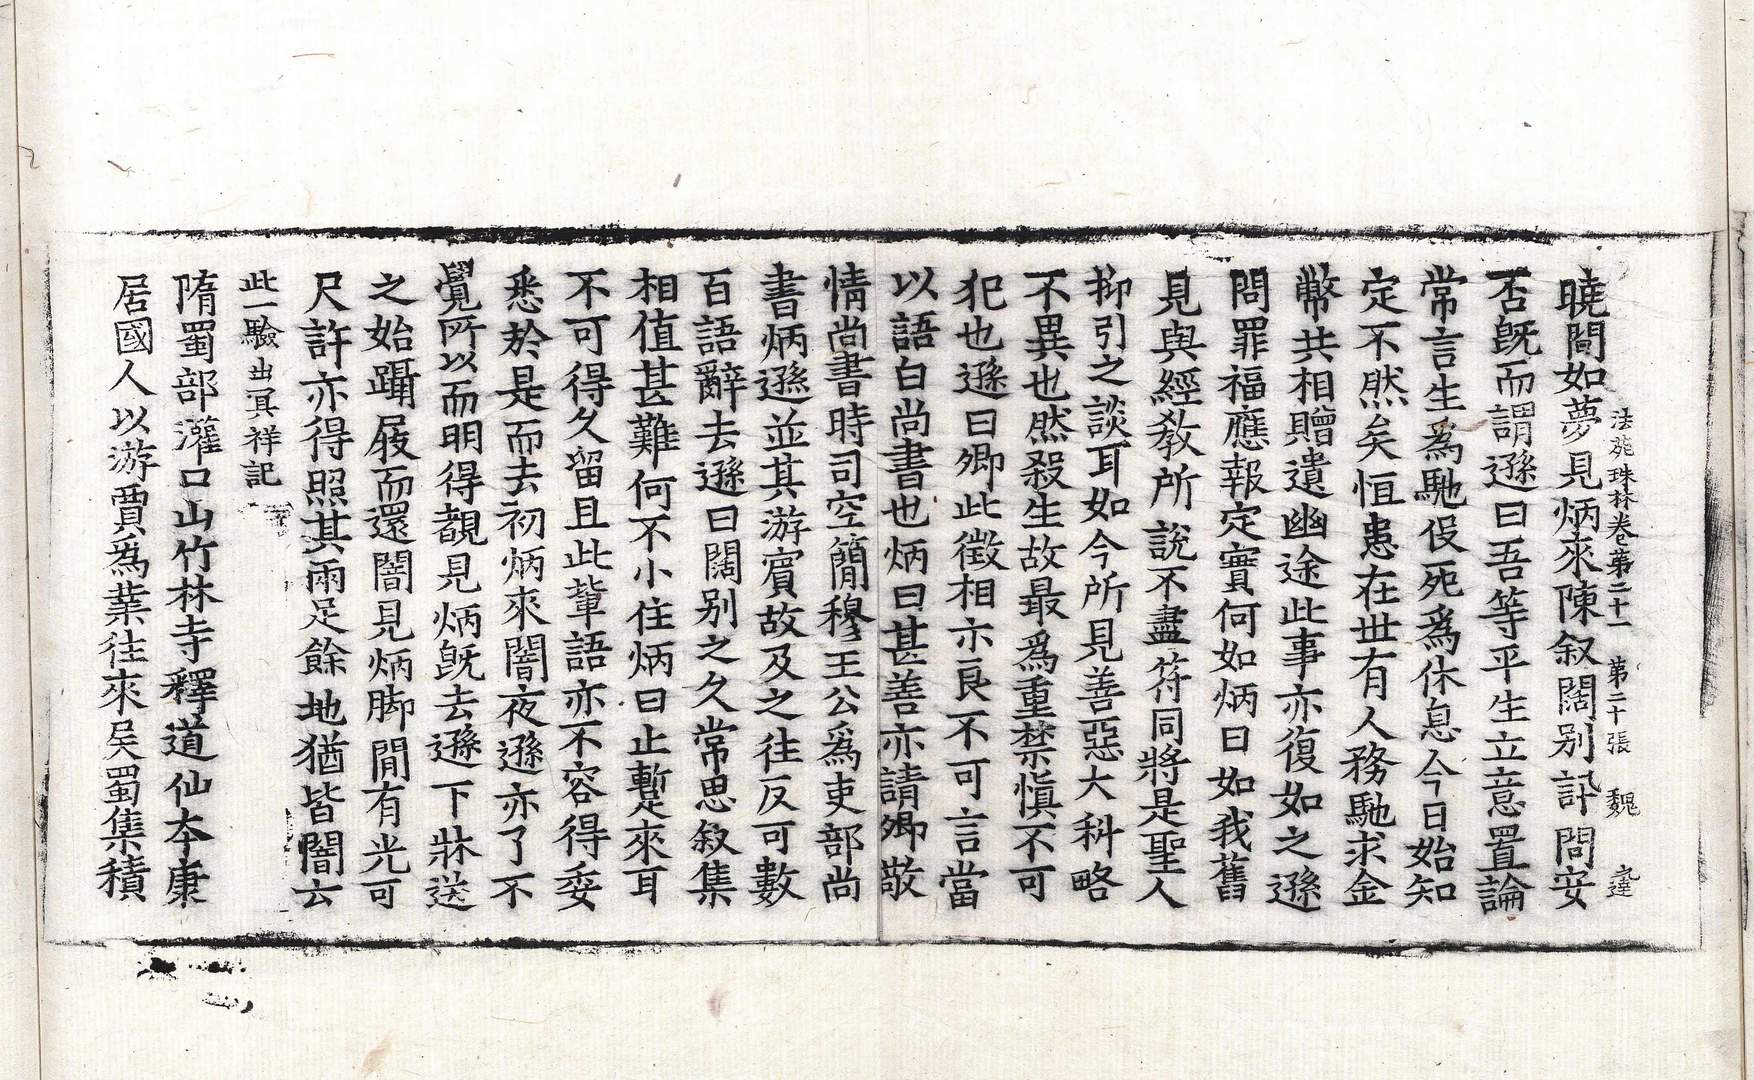 法苑珠林卷第二十一　第二十張　魏
曉間如夢見炳來陳叙闊別訊問安
否旣而謂遜曰吾等平生立意置論
常言生爲馳伇死爲休息今日始知
定不然矣恒患在世有人務馳求金
幣共相贈遺幽途此事亦復如之遜
問罪福應報定實何如炳曰如我舊
見與經教所說不盡符同將是聖人
抑引之談耳如今所見善惡大科略
不異也然殺生故最爲重禁愼不可
犯也遜曰卿此徵相示良不可言當
以語白尚書也炳曰甚善亦請卿敬
情尚書時司空簡穆王公爲吏部尚
書炳遜並其游賓故及之往反可數
百語辭去遜曰闊别之久常思叙集
相值甚難何不小住炳曰止蹔來耳
不可得久留且此軰語亦不容得委
悉於是而去初炳來闇夜遜亦了不
覺所以而明得覩見炳旣去遜下牀送
之始躡屐而還闇見炳脚間有光可
尺許亦得照其兩足餘地猶皆闇云
此一驗出冥祥記
隋蜀部灌口山竹林寺釋道仙本康
居國人以游賈爲業往來吳蜀集積